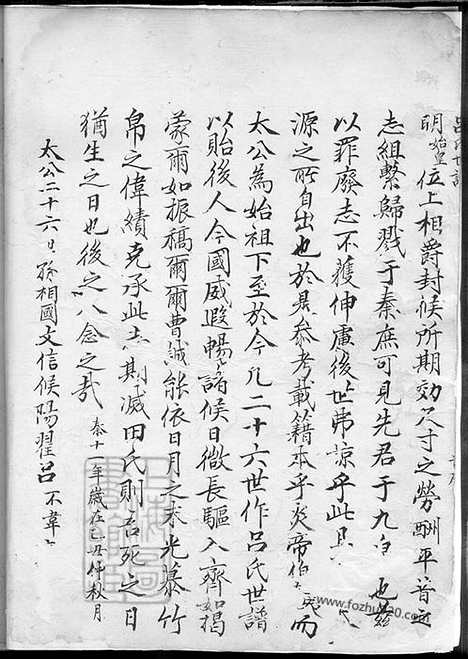 呂氏世譜
明始皇位上相爵封候所期効尺寸之勞酬平昔之
志組繫歸戮于秦庶可見先君于九
也茲
以罪廢志不獲伸慮後世弗諒乎此具
源之所自出也於是參考載籍本乎炎帝伯
而
太公為始祖下至於今凢二十六世作呂氏世譜
以貽後人今國威遐暢諸候日微長驅入齊如揭
蒙爾如振稿爾爾曹誠能依日月之末光慕竹
帛之偉績克承此志期滅田氏則吾死之日
猶生之日也後之人念之哉
秦十一年歲在己丑仲秋月
太公二十六世孫相國文信候陽翟呂不韋
www.fozhu920.com